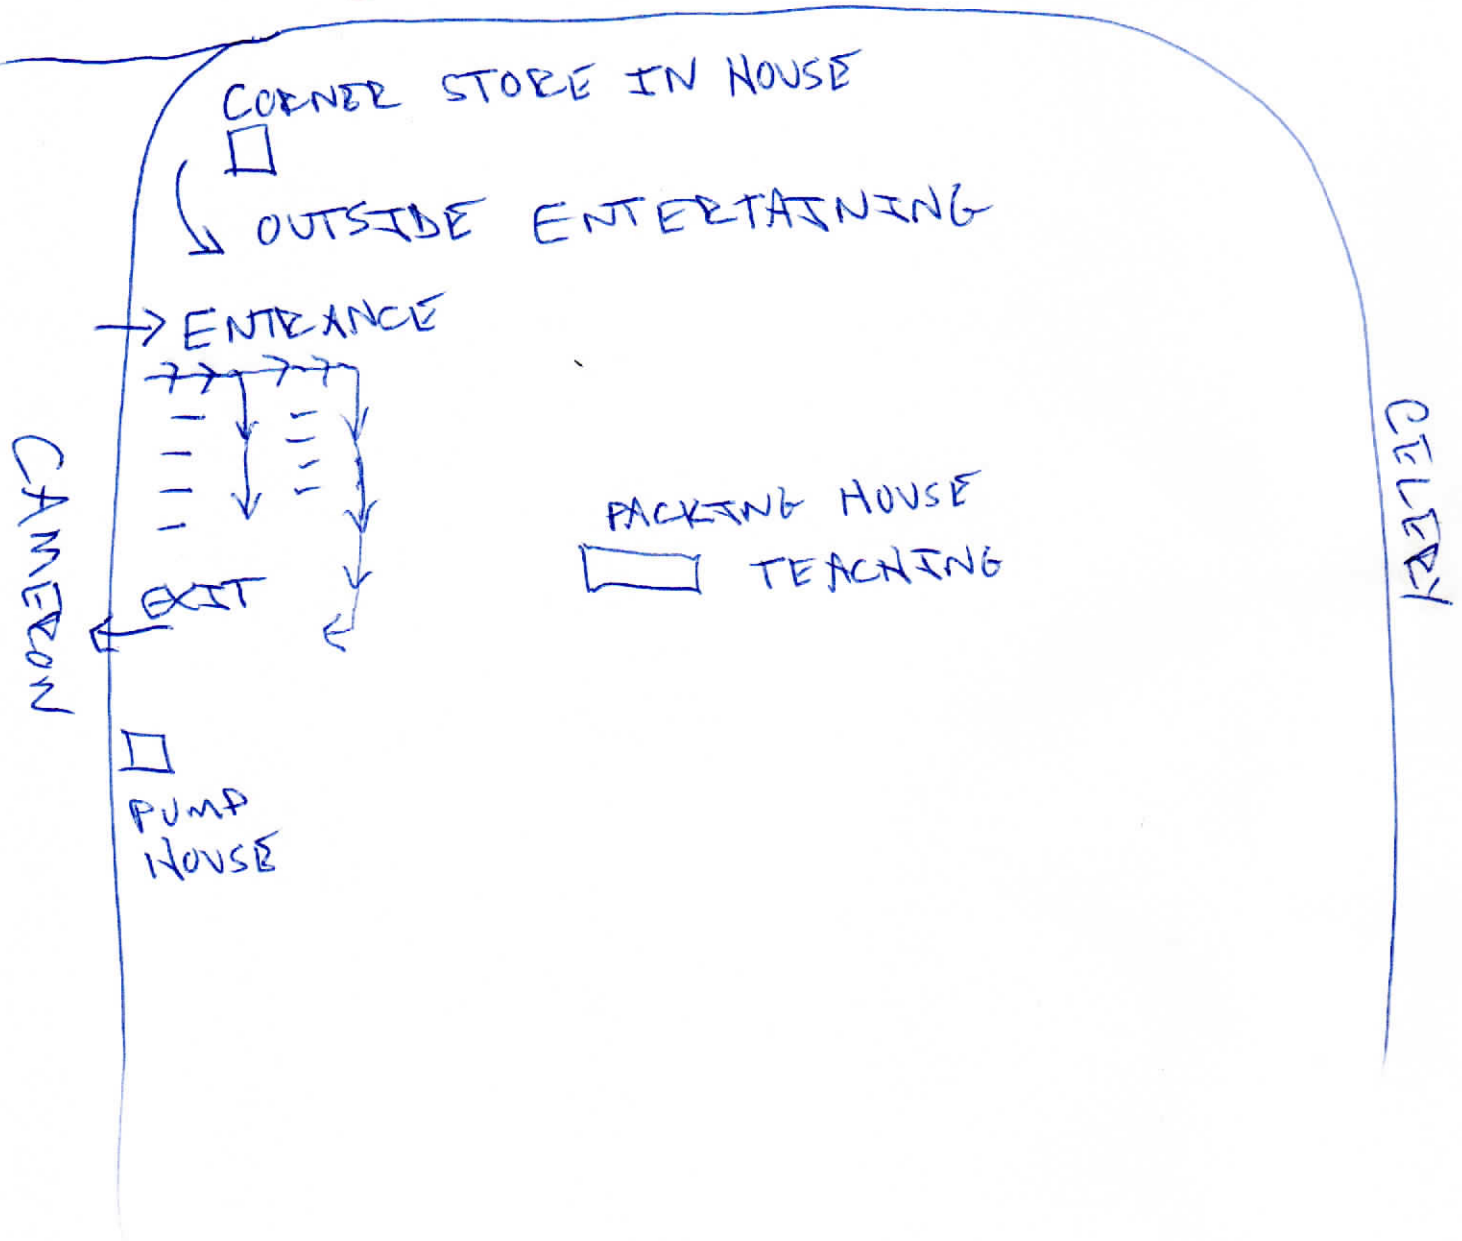 CORNER STORE IN HOUSE
OUTSIDE ENTERTAINING
ENTRANCE
CAMERON
CELERY
PACKING HOUSE
TEACHING
EXIT
PUMP
HOUSE